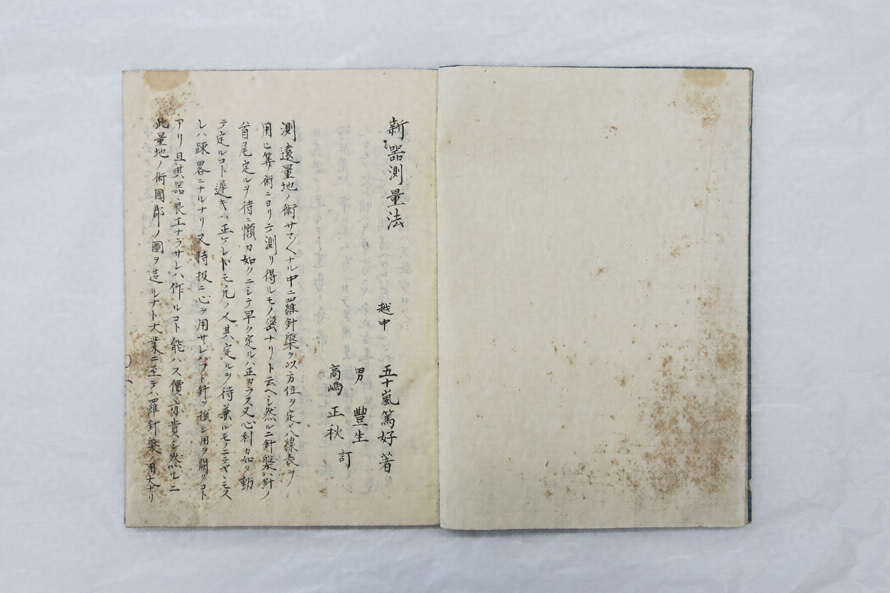 新器測量法
越中 五十嵐篤好 著
男 豐生
高嶋正秋 訂
測遠量地ノ術サマ〲ナル中ニ羅針盤ヲ以方位ヲ定八線表ヲ
用ヒ筭術ニヨリテ測リ得ルモノ密ナリト云ヘシ然ルニ針盤ハ針ノ
首尾定ルヲ待ニ懶カ如クニシテ早ク定ルハ正カラス又心利カ如ク動
テ定ルコト遅キハ正シケレトモ凡ノ人其定ルヲ待兼ルモノニテヤヽモス
レハ踈畧ニナルナリ又時扱ニ心ヲ用サレハフト針ヲ損シ用ヲ闕クコト
アリ且其器良工ナラサレハ作ルコト能ハス價モ亦貴シ然ルニ
此量地ノ術國郡ノ圖ヲ造ルナト大業ニ至テハ羅針盤ノ用大ナリ